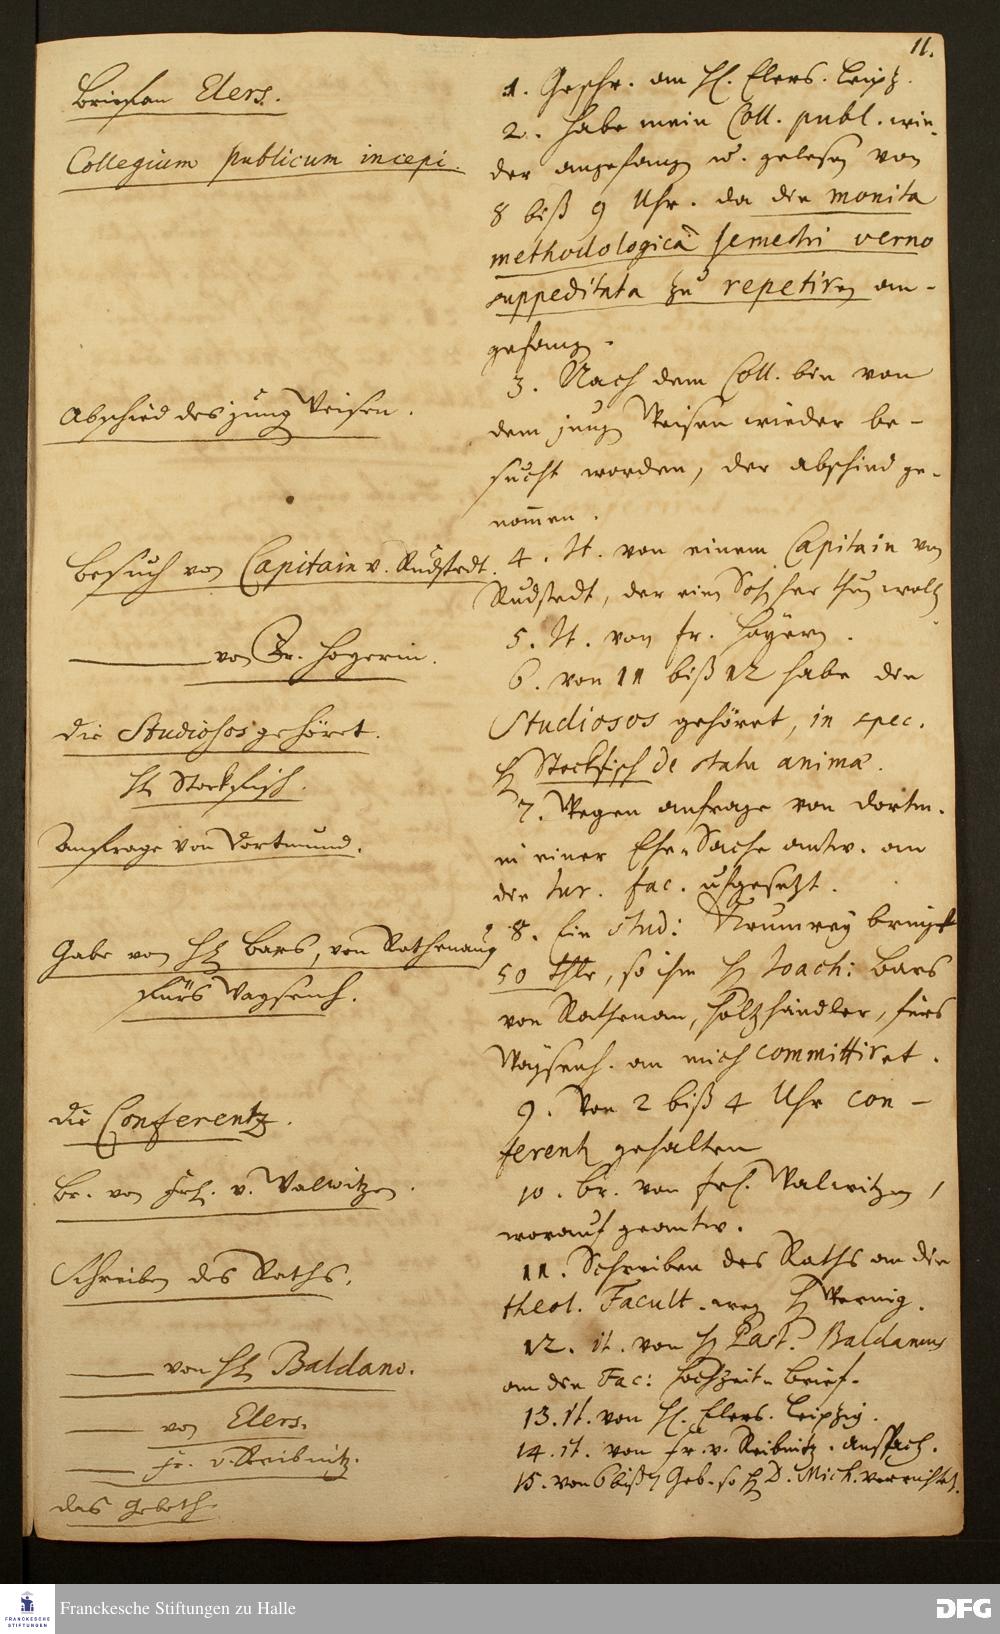 11.
Brief an Elers.
Collegium publicum incepi.
Abschied des jung Reisen.
Besuch von Capitain v. Rudstedt.
von Fr. Hoyerin.
die Studiosos gehöret.
H. Stockfisch.
Anfrage von Dortmund.
Gabe von H. Bars, von Rathenau
fürs Waysenh.
die Conferentz.
Br. von Frl. v. Walwitzen.
Schreiben des Raths.
von H. Baldano.
von Elers.
Fr. v. Reibnitz.
das Gebeth.
1. Geschr. an H. Elers. Leipz.
2. habe mein Coll. publ. wie-
der angefang u. gelesen von
8 biß 9 Uhr. da die monita
methodologica semestri verno
suppeditata zu repetiren an-
gefang.
3. Nach dem Coll. bin von
dem jung Reisen wieder be-
sucht worden, der abschied ge-
nommen.
4. It. von einem Capitain von
Rudstedt, der ein Sohn her thun wollen
5. It. von fr. Hoyern.
6. von 11 biß 12 habe die
Studiosos gehöret, in spec.
H Stockfisch de statu animæ.
7. Wegen anfrage von Dortm.
in einer Ehe-Sache antw. an
die Jur. Fac. ufgesetzt.
8. Ein Stud: Neumrey bringt
50 thlr, so ihm H Joach: Bars
von Rathenau, holtzhändler, fürs
Waysenh. an mich committiret.
9. Von 2 biß 4 Uhr con-
ferentz gehalten
10. br. von frl. Walwitzen,
worauf geantw.
11. Schreiben des Raths an die
theol. Facult. weg H Wernig.
12. it. von H Past. Baldanus
an die Fac: hochzeit-brief.
13. it. von H. Elers. Leipzig.
14. it. von Fr. v. Reibnitz. anspach.
15. von 6 biß 7 Geb. so H D. Mich. verrichtet.
Franckesche Stiftungen zu Halle
FRANCKESCHE
STIFTUNGEN
DFG